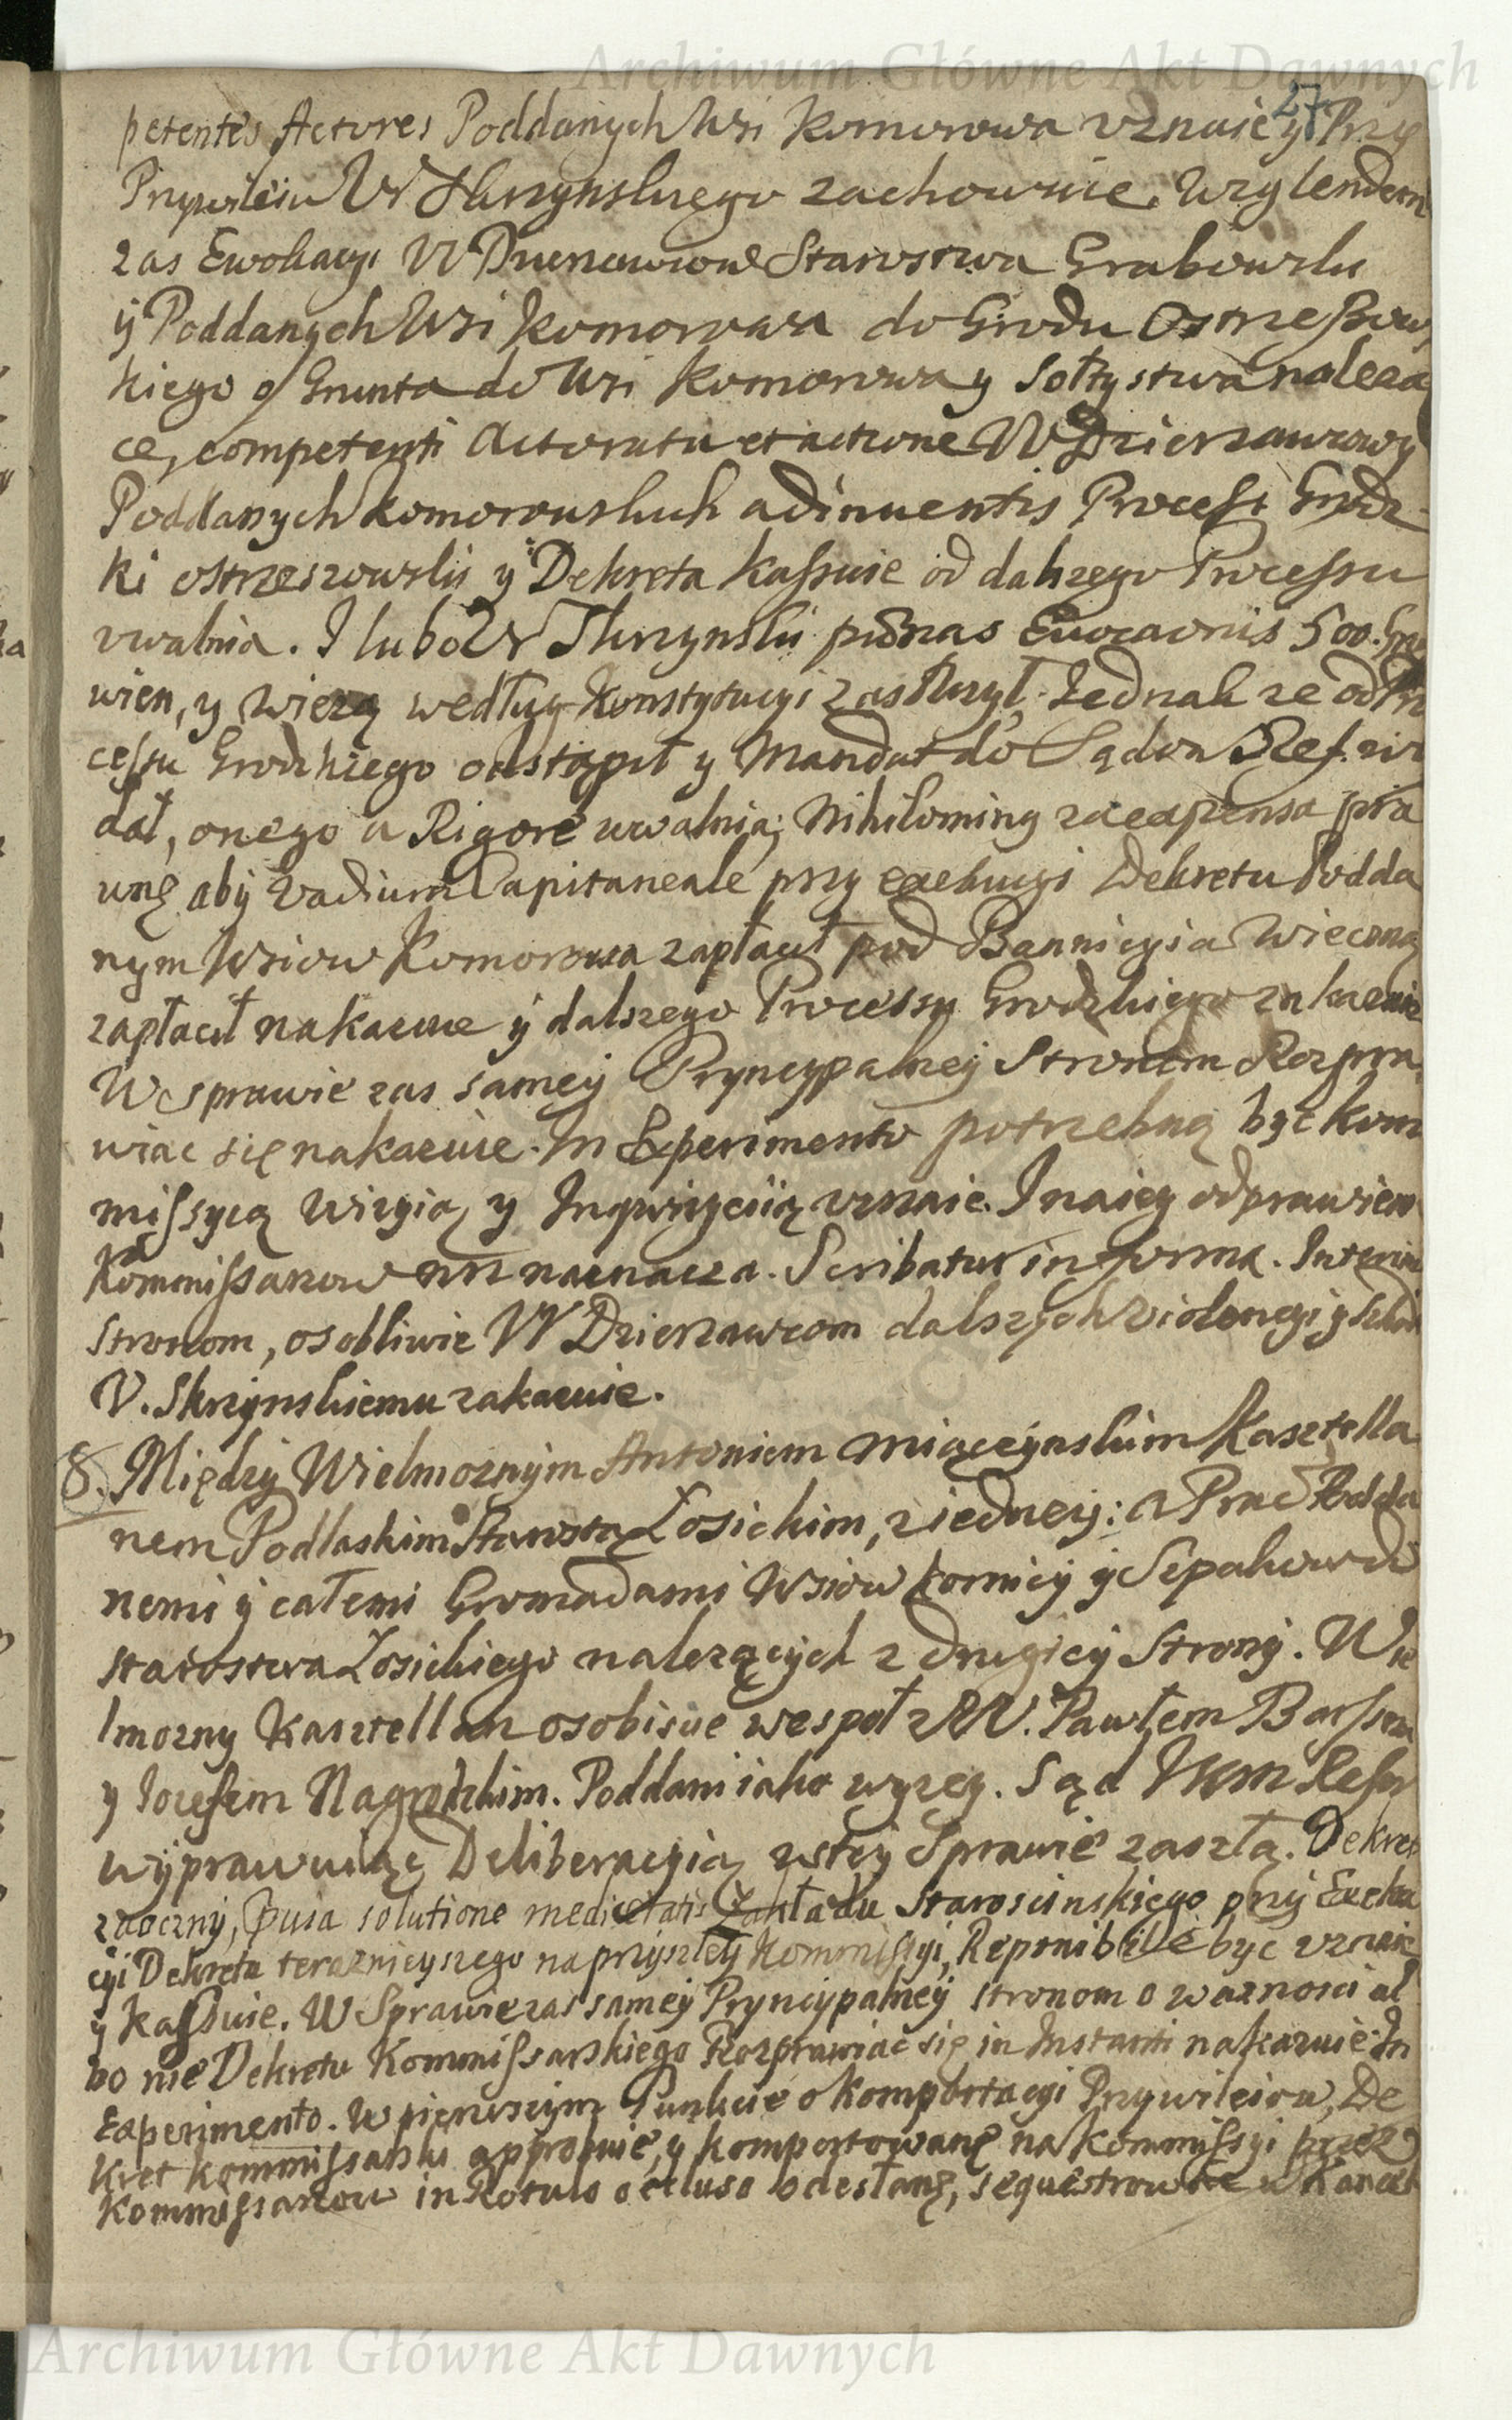 Archiwum Główne Akt Dawnych
27
petentes Actores Poddanych Wsi Komorowa vznaie y Przy
Przywileiu W Skrzynskiego zachowuie. Wzglendem
zas Ewokacyi W Dzierzawcow Starostwa Grabowsku
ÿ Poddanych Wsi Komorowa do Grodu Ostrzeszow
kiego o Grunta do Wsi Komorowa y Sołtystwa naleza
ce, competenti Actoratu et actione W Dzierzawcowy
Poddanych Komorowskich adinuentis Process Grodz
ki ostrzeszowski y Dekreta Kassuie od dalszego Processu
vwalnia. I lubo W Skrzynski pænas Euocationis 500. Grzy
wien, y Wiezą według Konstytucyi zasłuzył. Jednak ze od Pro
cessu Grodzkiego odstąpił y Mandat do Sądow Refen
dał, onego a Rigore uwalnia; Nihilominus za expensa pra
wne aby vadium Capitaneale przy exekucyi Dekretu Podda
nym Wsiow Komorowa zapłacił pod Bannicyia Wieczną
zapłacił nakazuie ÿ dalszego Processu Grodzkiego zakazuie
W sprawie zas sameÿ Pryncypalneÿ Stronom Rozpra
wiac się nakazuie. In Experimento potrzebną byc kom
missyią Wizyią y Inqwizycyią vznaie. I na iey odprawien
Kommissarzow nn naznacza. Scribatur in forma. Interim
stronom, osobliwie W Dzierzawcom dalszych violencyi y szkod
V. Skrzÿnskiemu zakazuie.
8. Międzÿ Wielmoznÿm Antoniem Miączÿnskim Kasztella
nem Podlaskim Starostą Łosickim, z iedneÿ: a Prac Podda
nemi ÿ całemi Gromadami Wsiow Kornicÿ ÿ Szpakow do
starostwa Łosickiego nalezącÿch z drugieÿ Stronÿ. Wie
lmozny Kasztellan osobiscie wespoł z W. Pawłem Barssem
y Iozefem Nagrodzkim. Poddani iako wyzey. Sąd JKM Refer
wÿprawuiąc Deliberacyią w teÿ Sprawie zaszłą. Dekret
zaocznÿ, solutione medietatis Zakładu Staroscinskiego przÿ Exeku
cÿi Dekretu teraznieyszego na przÿszłeÿ Kommissyi, Reponibile byc vznaie
y Kassuie. W Sprawie zas sameÿ Pryncÿpalneÿ stronom o waznosci al
bo nie Dekretu Kommissarskiego Rozprawiac się in Instanti nakazuie. In
Experimento. W pierwszÿm Punkcie o Komportacyi Przywileiow, De
kret kommissarski approbuie, y komportowane na Kommissyi przez
Kommissarzow in Rotulo occluso odesłane, sequestrowne w Kancel
Archiwum Główne Akt Dawnych